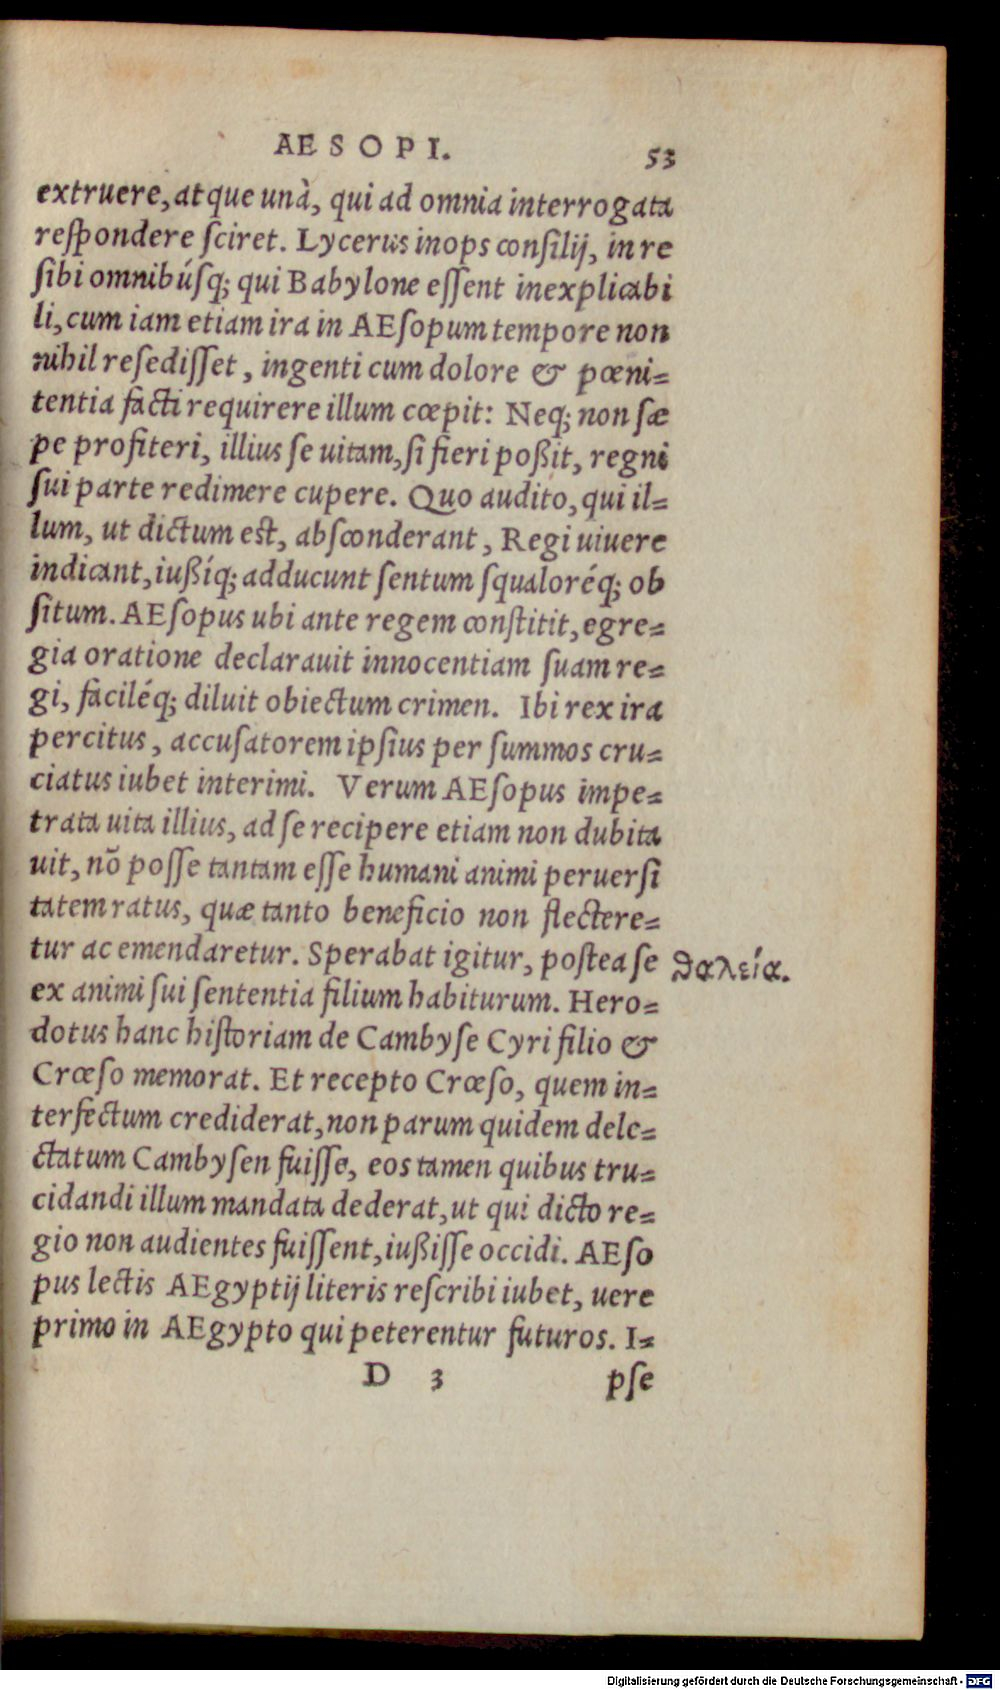 AESOPI. 53
extruere, atque unà, qui ad omnia interrogata
reſpondere ſciret. Lycerus inops conſilij, in re
ſibi omnibúſq; qui Babylone eſſent inexplicabi
li, cum iam etiam ira in AEſopum tempore non
nihil reſediſſet, ingenti cum dolore & pœni=
tentia facti requirere illum cœpit: Neq; non ſæ
pe profiteri, illius ſe uitam, ſi fieri poßit, regni
ſui parte redimere cupere. Quo audito, qui il=
lum, ut dictum eſt, abſconderant, Regi uiuere
indicant, iußíq; adducunt ſentum ſqualoréq; ob
ſitum. AEſopus ubi ante regem conſtitit, egre=
gia oratione declarauit innocentiam ſuam re=
gi, faciléq; diluit obiectum crimen. Ibi rex ira
percitus, accuſatorem ipſius per ſummos cru=
ciatus iubet interimi. Verum AEſopus impe=
trata uita illius, ad ſe recipere etiam non dubita
uit, nõ poſſe tantam eſſe humani animi peruerſi
tatem ratus, quæ tanto beneficio non flectere=
tur ac emendaretur. Sperabat igitur, poſtea ſe
θαλεία.
ex animi ſui ſententia filium habiturum. Hero=
dotus hanc hiſtoriam de Cambyſe Cyri filio &
Crœſo memorat. Et recepto Crœſo, quem in=
terfectum crediderat, non parum quidem dele=
ctatum Cambyſen fuiſſe, eos tamen quibus tru=
cidandi illum mandata dederat, ut qui dicto re=
gio non audientes fuiſſent, iußiſſe occidi. AEſo
pus lectis AEgyptij literis reſcribi iubet, uere
primo in AEgypto qui peterentur futuros. I=
D 3 pſe
Digitalisierung gefördert durch die Deutsche Forschungsgemeinschaft - DFG